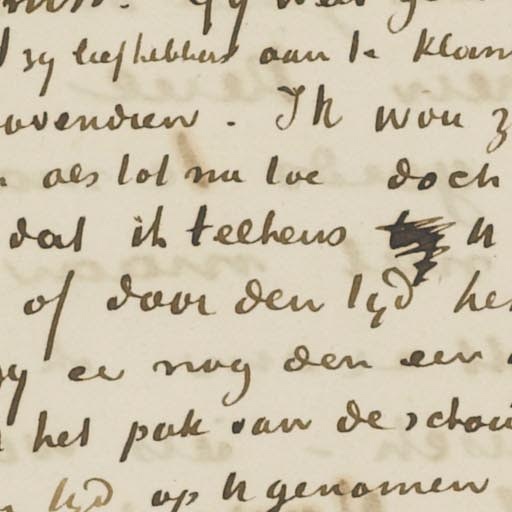 zy liefhebbers aan te klam
bovendien. Ik wou z
als tot nu toe doch
dat ik telkens u
of door den tyd he
zy er nog den een
het pak van de schou
tyd op u genomen